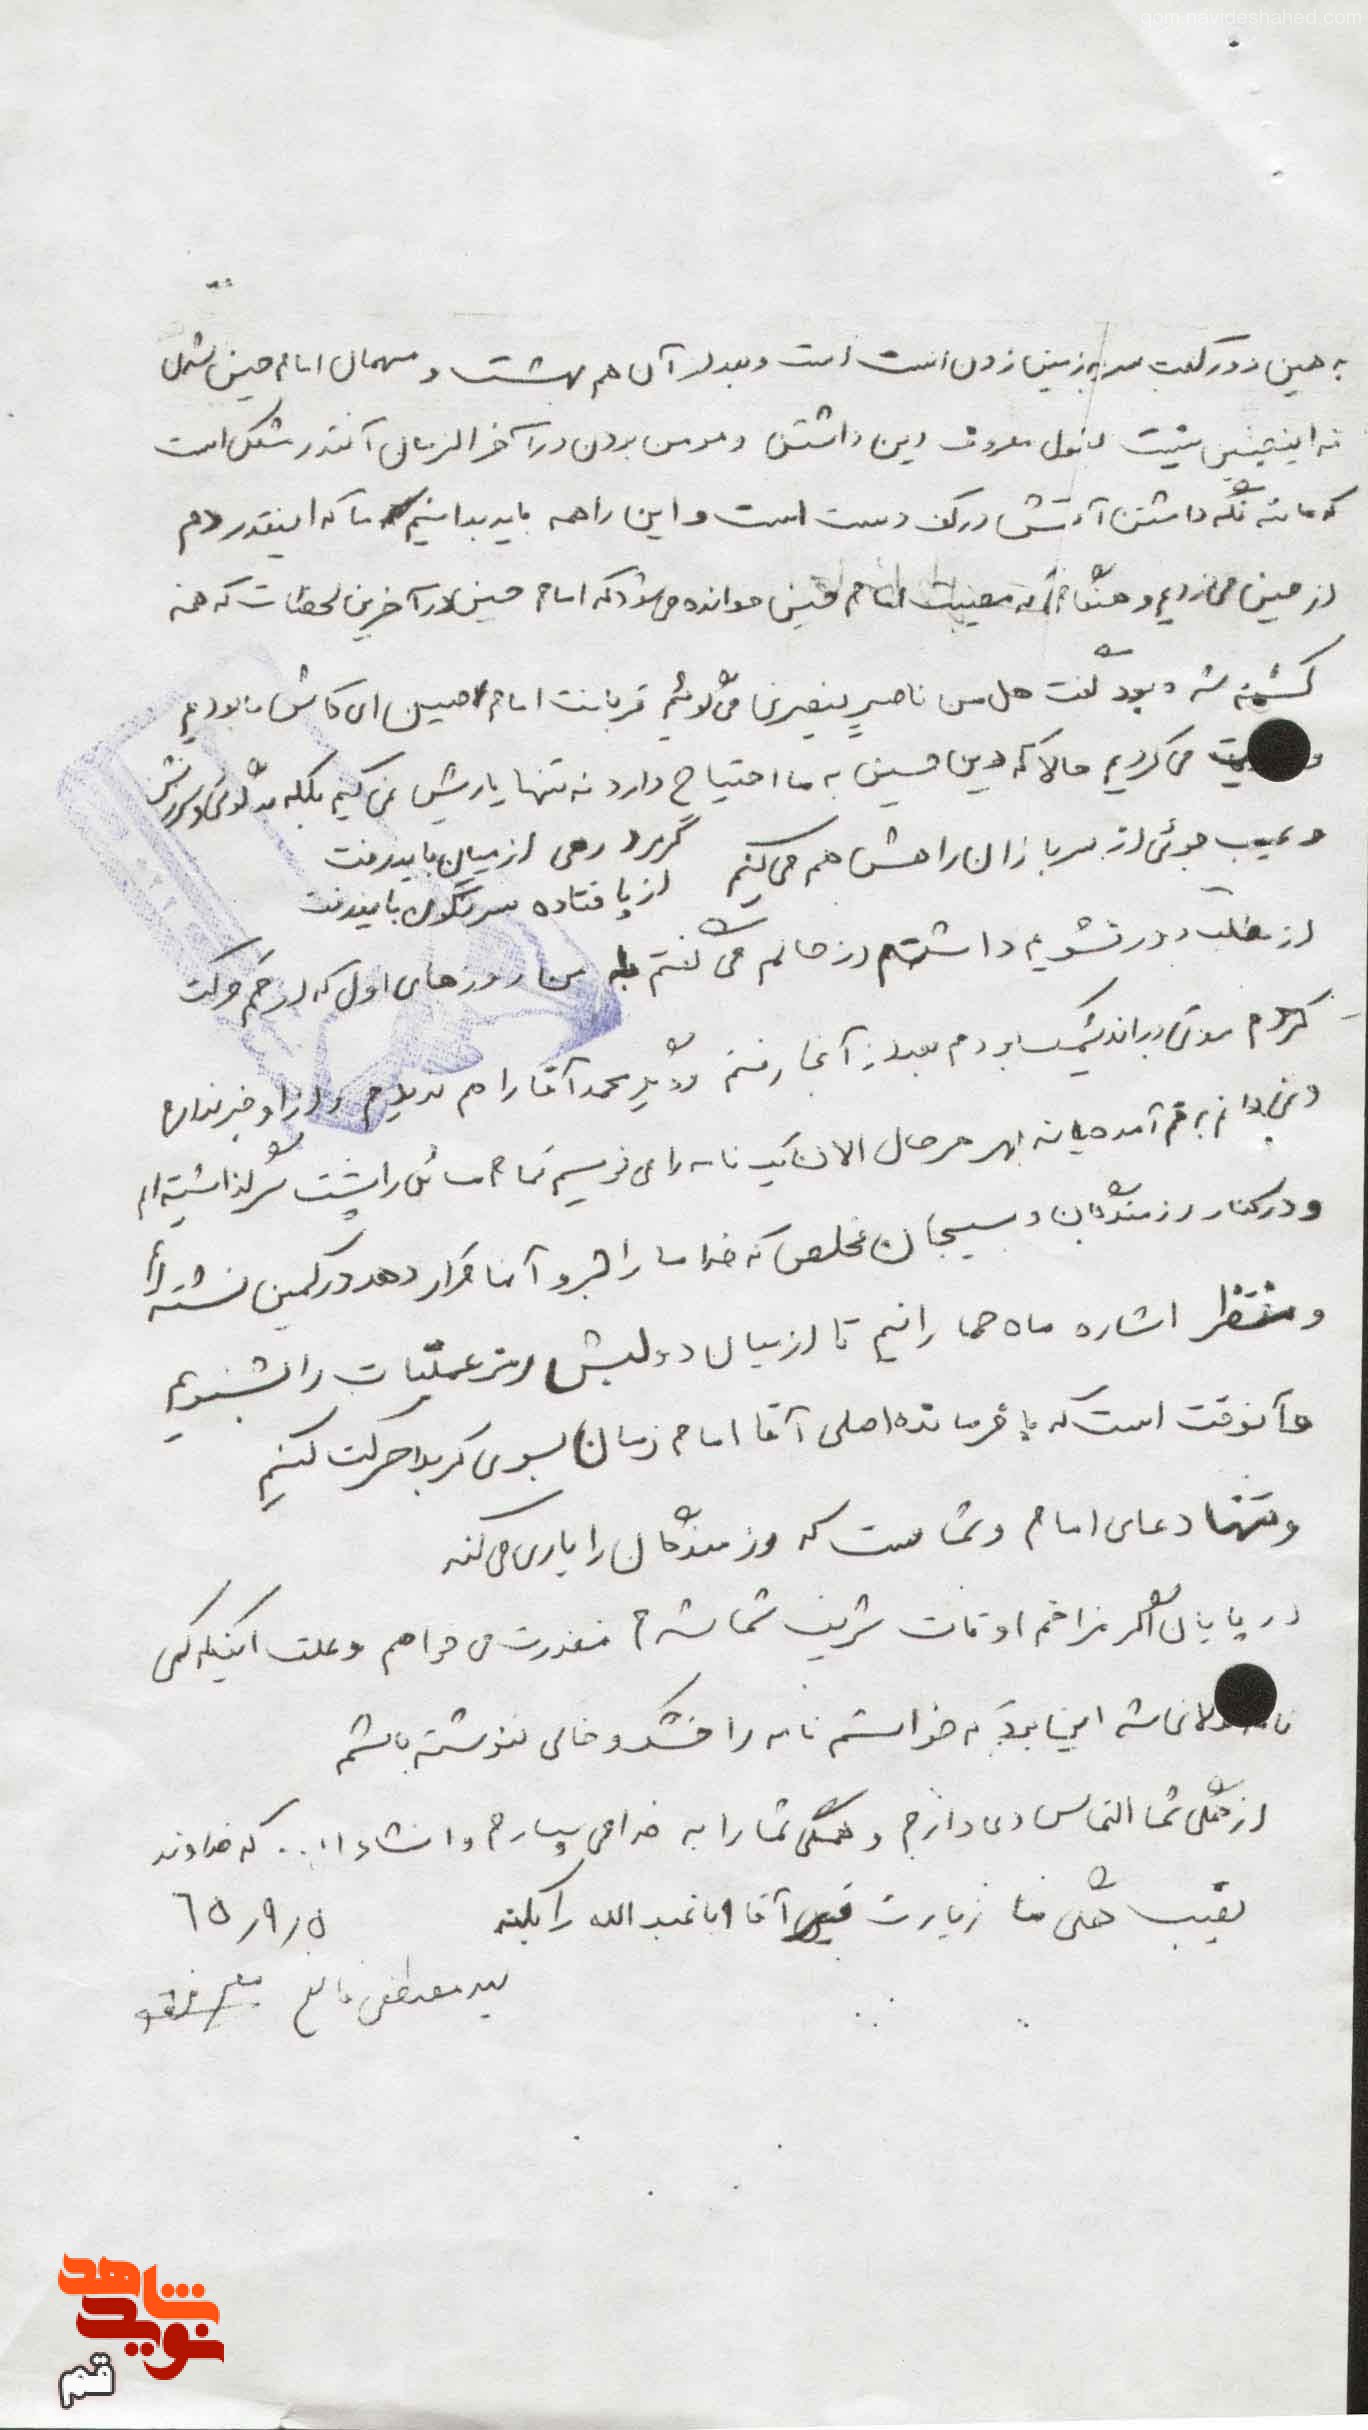 qom.navideshahed.com
به همین دو رکعت سر به زمین زدن است است و بعد از آن هم بهشت و مهمان امام حسین شدن
نه اینچنین نیست بقول معروف دین داشتن و مومن بودن در آخر الزمان آنقدر مشکل است
که مانند نگه داشتن آتش در کف دست است و این را همه باید بدانیم ما که اینقدر دم
از حسین می زدیم و هنگام که مصیبت امام حسین خوانده می شود که امام حسین در آخرین لحظات که همه
کشته شده بود گفت هل من ناصرٍ ینصرنی می گوئیم قربانت امام حسین ای کاش ما بودیم
و می کردیم حالا که دین حسین به ما احتیاج دارد نه تنها یاریش نمی کنیم بلکه بد گوئی و سرزنش
و عیب جوئی از سربازان راهش هم می کنیم گر مرد رهی از میان باید رفت
از پا فتاده سرنگون باید رفت
از مطلب دور نشویم داشتم از حالم می گفتم من روزهای اول که از قم حرکت
کردم موقتی در اندیمشک بودم بعد از آنجا رفتم و دیگر محمد آقا را هم ندیدم و از او خبر ندارم
و نمی دانم به قم آمده یا نه بهر هر حال الان که نامه را می نویسم تمام مسائل را پشت سر گذاشته ایم
و در کنار رزمندگان و بسیجیان مخلص که خدا ما را جزو آنها قرار دهد در کمین نشسته ایم
و منتظر اشاره ماه جمارانیم تا از میان دو لبش رمز عملیات را بشنویم
و آنوقت است که با فرمانده اصلی آقا امام زمان بسوی کربلا حرکت کنیم
و تنها دعای امام و شماست که رزمندگان را یاری می کند
در پایان اگر مزاحم اوقات شریف شما شدم معذرت می خواهم و علت اینکه کمی
نامه طولانی شد این بود که خواستم نامه را خشک و خالی ننوشته باشم
از همگی شما التماس دعا دارم و همگی شما را به خدا می سپارم و انشاء ا... که خداوند
نصیب همگی ما زیارت قبر آقا ابا عبد الله را بکند
۶۵/۹/۵
سید مصطفی
نوید شاهد
قم